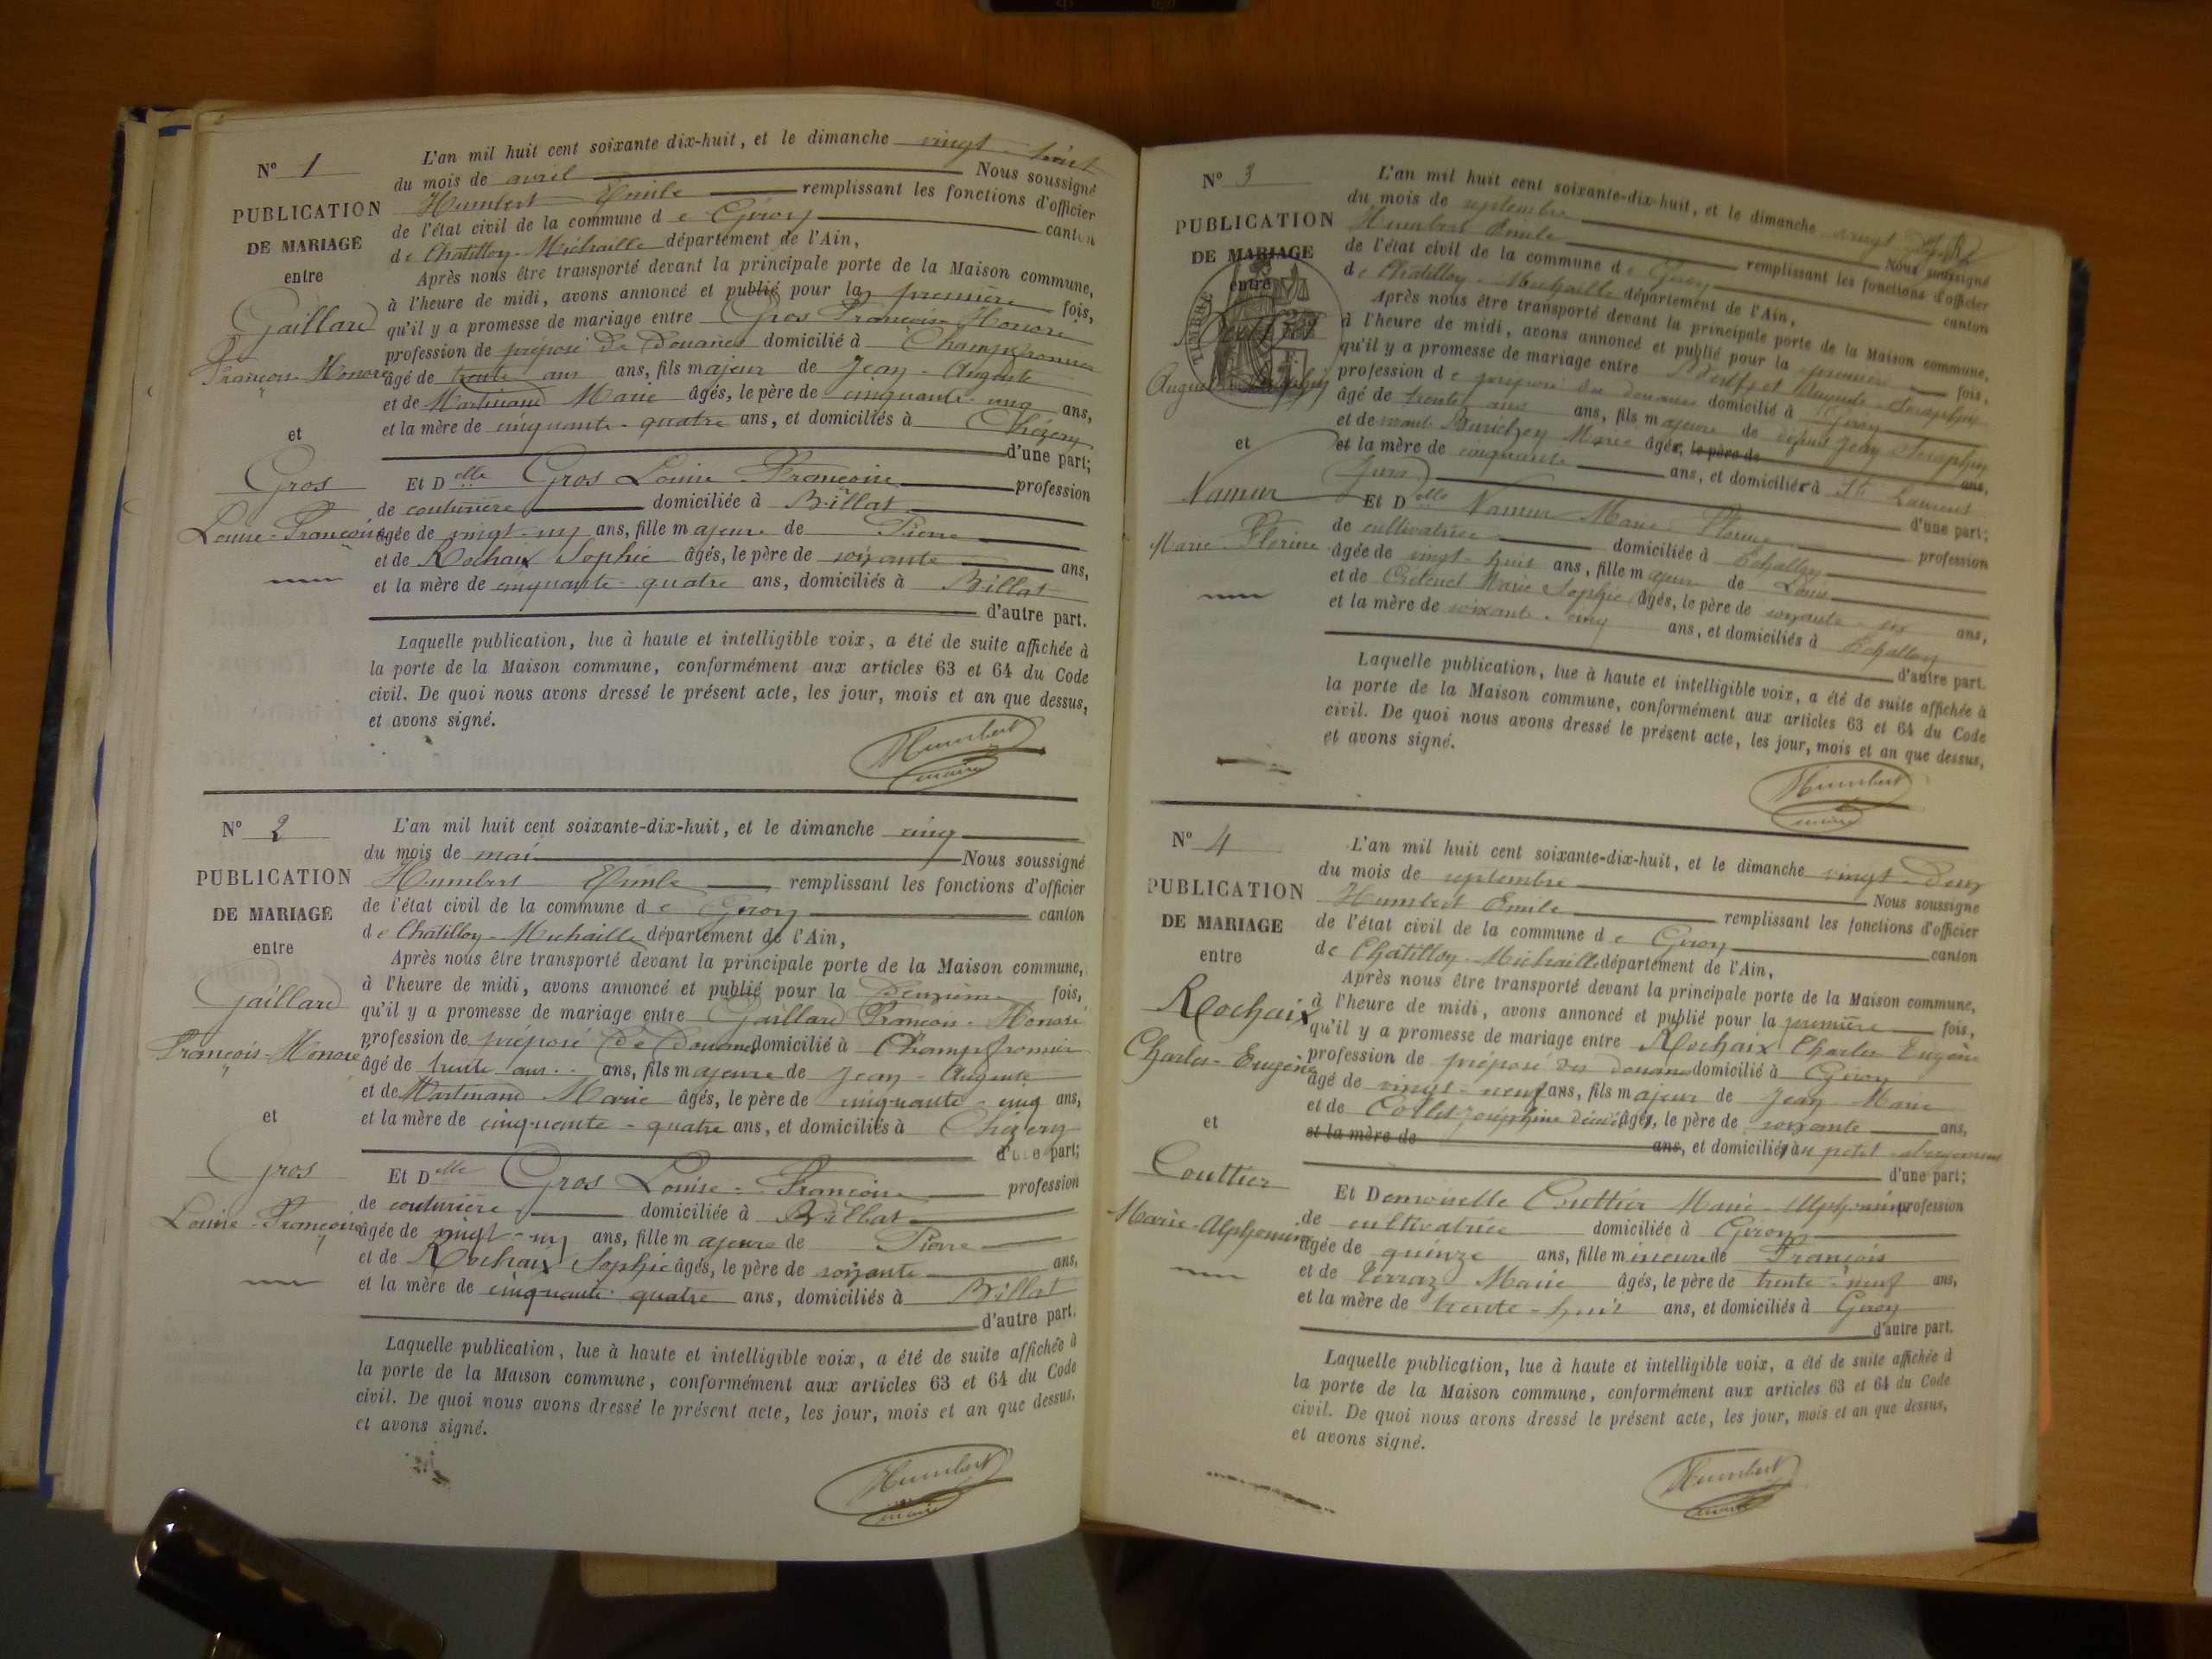 N° 1
PUBLICATION
DE MARIAGE
entre
Gaillard
François-Honoré
et
Gros
Louise-Françoise
L'an mil huit cent soixante dix-huit, et le dimanche vingt-huit
du mois de avril Nous soussigné
Humbert Emile remplissant les fonctions d'officier
de l'état civil de la commune de Giron canton
de Chatillon-Michaille département de l'Ain,
Après nous être transporté devant la principale porte de la Maison commune,
à l'heure de midi, avons annoncé et publié pour la première fois,
qu'il y a promesse de mariage entre Gros François-Honoré
profession de préposé de Douanes domicilié à Champfromier
âgé de trente ans ans, fils majeur de Jean-Auguste
et de Martinand Marie âgés, le père de cinquante-cinq ans,
et la mère de cinquante-quatre ans, et domiciliés à Chézery
d'une part;
Et Delle Gros Louise-Françoise profession
de couturière domiciliée à Billiat
âgée de vingt-un ans, fille majeure de Pierre
et de Rochaix Sophie âgés, le père de soixante ans,
et la mère de cinquante-quatre ans, domiciliés à Billat
d'autre part.
Laquelle publication, lue à haute et intelligible voix, a été de suite affichée à
la porte de la Maison commune, conformément aux articles 63 et 64 du Code
civil. De quoi nous avons dressé le présent acte, les jour, mois et an que dessus,
et avons signé.
Humbert
maire
N° 2
PUBLICATION
DE MARIAGE
entre
Gaillard
François-Honoré
et
Gros
Louise-Françoise
L'an mil huit cent soixante-dix-huit, et le dimanche cinq
du mois de mai Nous soussigné
Humbert Emile remplissant les fonctions d'officier
de l'état civil de la commune de Giron canton
de Châtillon-Michaille département de l'Ain,
Après nous être transporté devant la principale porte de la Maison commune,
à l'heure de midi, avons annoncé et publié pour la Deuxième fois,
qu'il y a promesse de mariage entre Gaillard François-Honoré
profession de préposé de Douanes domicilié à Champfromier
âgé de trente ans ans, fils majeure de Jean-Auguste
et de Martinand Marie âgés, le père de cinquante-cinq ans,
et la mère de cinquante-quatre ans, et domiciliés à Chézery
d'une part;
Et Delle Gros Louise-Françoise profession
de couturière domiciliée à Billiat
âgée de vingt-un ans, fille majeure de Pierre
et de Rochaix Sophie âgés, le père de soixante ans,
et la mère de cinquante quatre ans, domiciliés à Billat
d'autre part.
Laquelle publication, lue à haute et intelligible voix, a été de suite affichée à
la porte de la Maison commune, conformément aux articles 63 et 64 du Code
civil. De quoi nous avons dressé le présent acte, les jour, mois et an que dessus,
et avons signé.
Humbert
maire
N° 3
PUBLICATION
DE MARIAGE
entre
TIMBRE
et
Namur
Marie-Florine
L'an mil huit cent soixante-dix-huit, et le dimanche vingt
du mois de septembre Nous soussigné
Humbert Emile remplissant les fonctions d'officier
de l'état civil de la commune de Giron canton
de Chatillon-Michaille département de l'Ain,
Après nous être transporté devant la principale porte de la Maison commune,
à l'heure de midi, avons annoncé et publié pour la première fois,
qu'il y a promesse de mariage entre Auguste-Séraphin
profession de préposé des douanes domicilié à Giron
âgé de trente ans ans, fils majeure de défunt Jean Séraphin
et de Marie âgée, le père de ans,
et la mère de cinquante ans, et domiciliée à St Laurent
Jura d'une part;
Et Delle Namur Marie Florine profession
de cultivatrice domiciliée à Echallon
âgée de vingt-huit ans, fille majeure de Louis
et de Marie Sophie âgés, le père de soixante-six ans,
et la mère de soixante-cinq ans, et domiciliés à Echallon
d'autre part.
Laquelle publication, lue à haute et intelligible voix, a été de suite affichée à
la porte de la Maison commune, conformément aux articles 63 et 64 du Code
civil. De quoi nous avons dressé le présent acte, les jour, mois et an que dessus,
et avons signé.
Humbert
maire
N° 4
PUBLICATION
DE MARIAGE
entre
Rochaix
Charles-Eugène
et
Couttier
Marie-Alphonsine
L'an mil huit cent soixante-dix-huit, et le dimanche vingt-deux
du mois de septembre Nous soussigné
Humbert Emile remplissant les fonctions d'officier
de l'état civil de la commune de Giron canton
de Châtillon-Michaille département de l'Ain,
Après nous être transporté devant la principale porte de la Maison commune,
à l'heure de midi, avons annoncé et publié pour la première fois,
qu'il y a promesse de mariage entre Rochaix Charles Eugène
profession de préposé des douanes domicilié à Giron
âgé de vingt-neuf ans, fils majeur de Jean Marie
et de Collet Joséphine décédée âgés, le père de soixante ans,
et la mère de ans, et domicilié au petit abergement
d'une part;
Et Demoiselle Couttier Marie-Alphonsine profession
de cultivatrice domiciliée à Giron
âgée de quinze ans, fille mineure de François
et de Terraz Marie âgés, le père de trente-neuf ans,
et la mère de trente-huit ans, et domiciliés à Giron
d'autre part.
Laquelle publication, lue à haute et intelligible voix, a été de suite affichée à
la porte de la Maison commune, conformément aux articles 63 et 64 du Code
civil. De quoi nous avons dressé le présent acte, les jour, mois et an que dessus,
et avons signé.
Humbert
maire